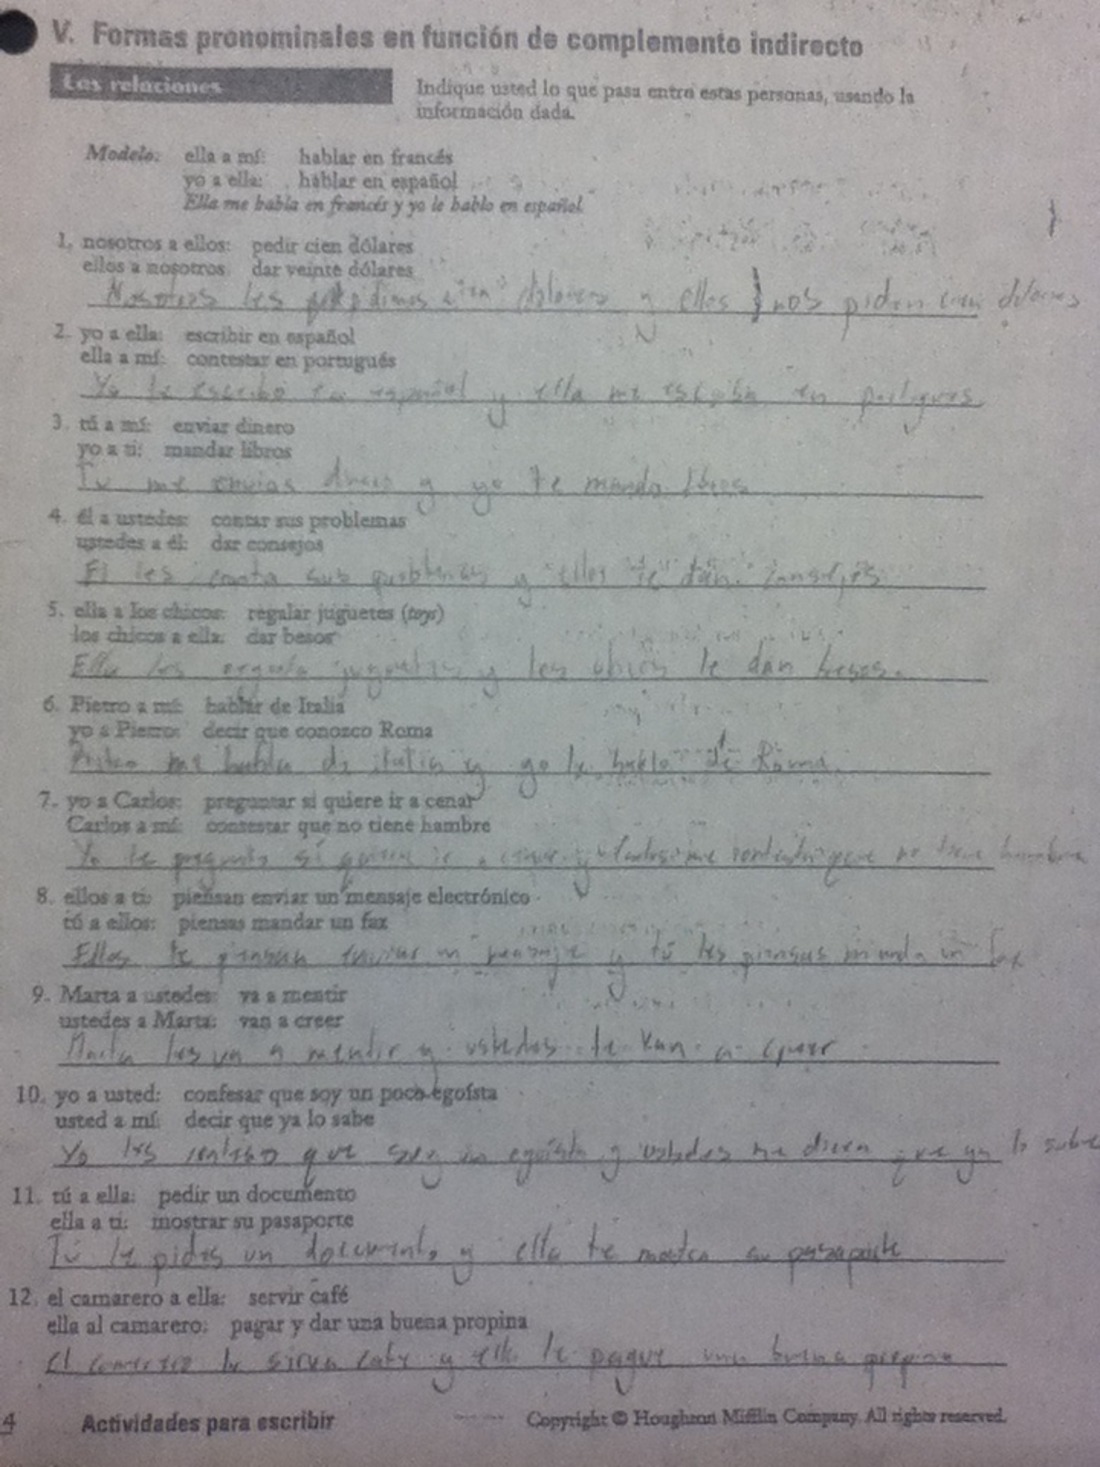 V. Formas pronominales en función de complemento indirecto
Las relaciones
Indique usted lo que pasa entre estas personas, usando la
información dada.
Modelo: ella a mí: hablar en francés
yo a ella: hablar en español
Ella me habla en francés y yo le hablo en español.
1. nosotros a ellos: pedir cien dólares
ellos a nosotros: dar veinte dólares
Nosotros les pedimos cien dolares y ellos nos piden cien dolares
2. yo a ella: escribir en español
ella a mí: contestar en portugués
Yo le escribo en español y ella me escriba en
3. tú a mí: enviar dinero
yo a ti: mandar libros
Tú me envias dinero y yo te mando libros
4. él a ustedes: contar sus problemas
ustedes a él: dar consejos
El les conta sus problemas y ellos le dan consejos
5. ella a los chicos: regalar juguetes (toys)
los chicos a ella: dar besos
Ella les regala juguetes y los chicos le dan besos.
6. Pietro a mí: hablar de Italia
yo a Pietro: decir que conozco Roma
Pietro me habla de italia y yo le hablo de Roma.
7. yo a Carlos: preguntar si quiere ir a cenar
Carlos a mí: contestar que no tiene hambre
Yo le pregunto si quiere ir a cenar y Carlos me contesta que no tiene hambre
8. ellos a ti: piensan enviar un mensaje electrónico
tú a ellos: piensas mandar un fax
Ellos te piensan enviar un mensaje y tú les piensas manda un fax
9. Marta a ustedes: va a mentir
ustedes a Marta: van a creer
Marta les va a mentir y ustedes le van a creer
10. yo a usted: confesar que soy un poco egoísta
usted a mí: decir que ya lo sabe
Yo les confeso que soy un egoísta y ustedes me dicen que ya lo sabe
11. tú a ella: pedir un documento
ella a ti: mostrar su pasaporte
Tú le pides un documento y ella te su pasaporte
12. el camarero a ella: servir café
ella al camarero: pagar y dar una buena propina
El camarero le sirve cafe y ella le pague una buena propina
4 Actividades para escribir
Copyright © Houghton Mifflin Company. All rights reserved.